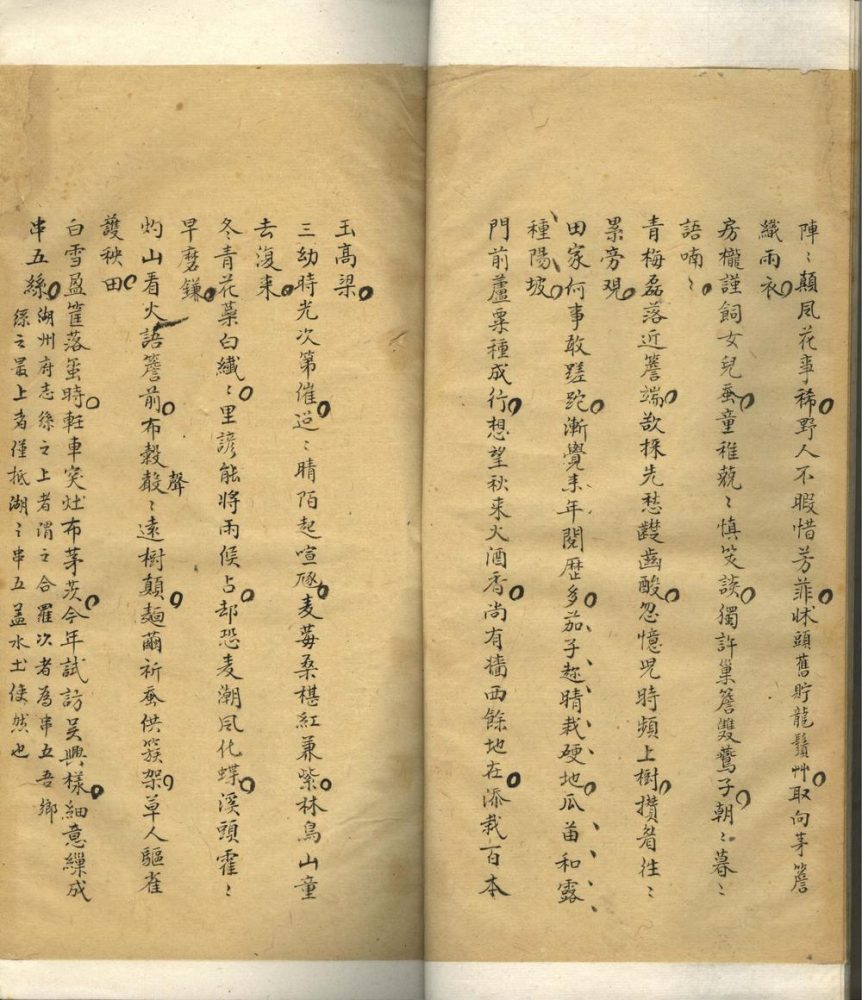 陣〻顛風花事稀野人不暇惜芳菲牀頭舊貯龍鬚艸取向茅簷
織雨衣
房櫳謹飼女兒蚕童稚藐〻慎笑談獨許巢簷雙鷰子朝〻暮〻
語喃〻
青梅磊落近簷端欲採先愁齼齒酸忽憶児時頻上樹攢眉徃〻
累旁覌
田家何事敢蹉跎漸覺来年閱歷多茄子趂晴栽硬地瓜苗和露
種陽坡
門前蘆粟種成行想望秋来火酒香尚有墻西餘地在添栽百本
玉高梁
三幼時光次第催迢〻晴陌起喧豗麦莓桑椹紅兼紫林鳥山童
去復来
冬青花蕚白纖〻里諺能將雨候占却恐麦潮風化蝶溪頭霍〻
早磨鎌
灼山看火語簷前布穀聲〻遠樹顛麺繭祈蚕供簇架草人驅雀
護秧田
白雪盈筐落蠒時軖車突灶布茅茨今年試訪吴興樣細意繅成
串五絲湖州府志絲之上者謂之合羅次者為串五吾鄉
絲之最上者僅抵湖之串五盖水土使然也